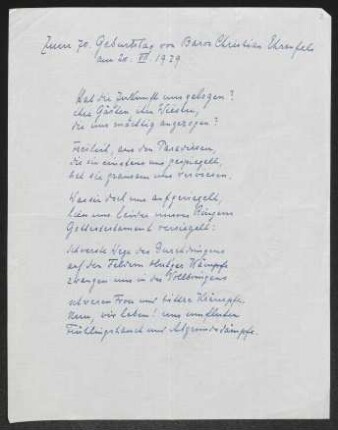 Zum 70. Geburtstag von Baron Christian Ehrenfels
am 20. VI. 1929
Hat die Zukunft uns gelogen?
den Gärten, den Wiesen,
die uns mächtig angezogen?
Freilich, aus den Paradiesen,
die sie einstens uns gespiegelt,
hat sie grausam uns verwiesen.
War sie doch uns aufgeriegelt,
uns beiden unsres Ringens
versiegelt:
Schwerste Wege des Durchdringens
auf den Feldern blutger Kämpfe
zwangen uns in die Vollbringens
schweren Fron und bittre Krämpfe.
Nun, wir leben! uns umfluten
Frühlingshauch und Abgrundsdämpfe.